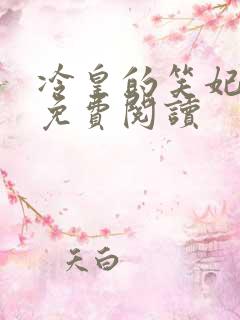 冷皇的笑妃
免費閱讀
天白